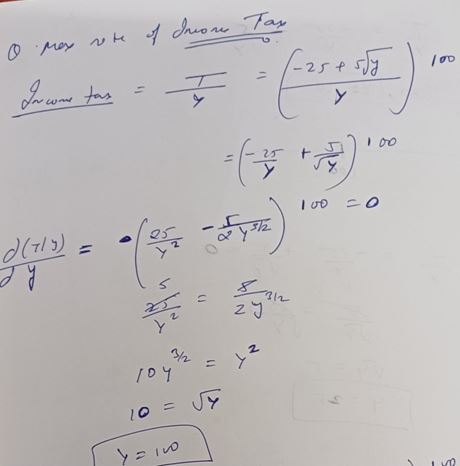 Q max rate of Income Tax
Income tax = T/Y = ((-25 + 5√y)/Y) 100
= (-25/Y + 5/√Y) 100
d(T/y)/dY = (25/Y² - 5/2Y^3/2) 100 = 0
5 25/Y² = 5/2Y^3/2
10Y^3/2 = Y²
10 = √Y
Y = 100